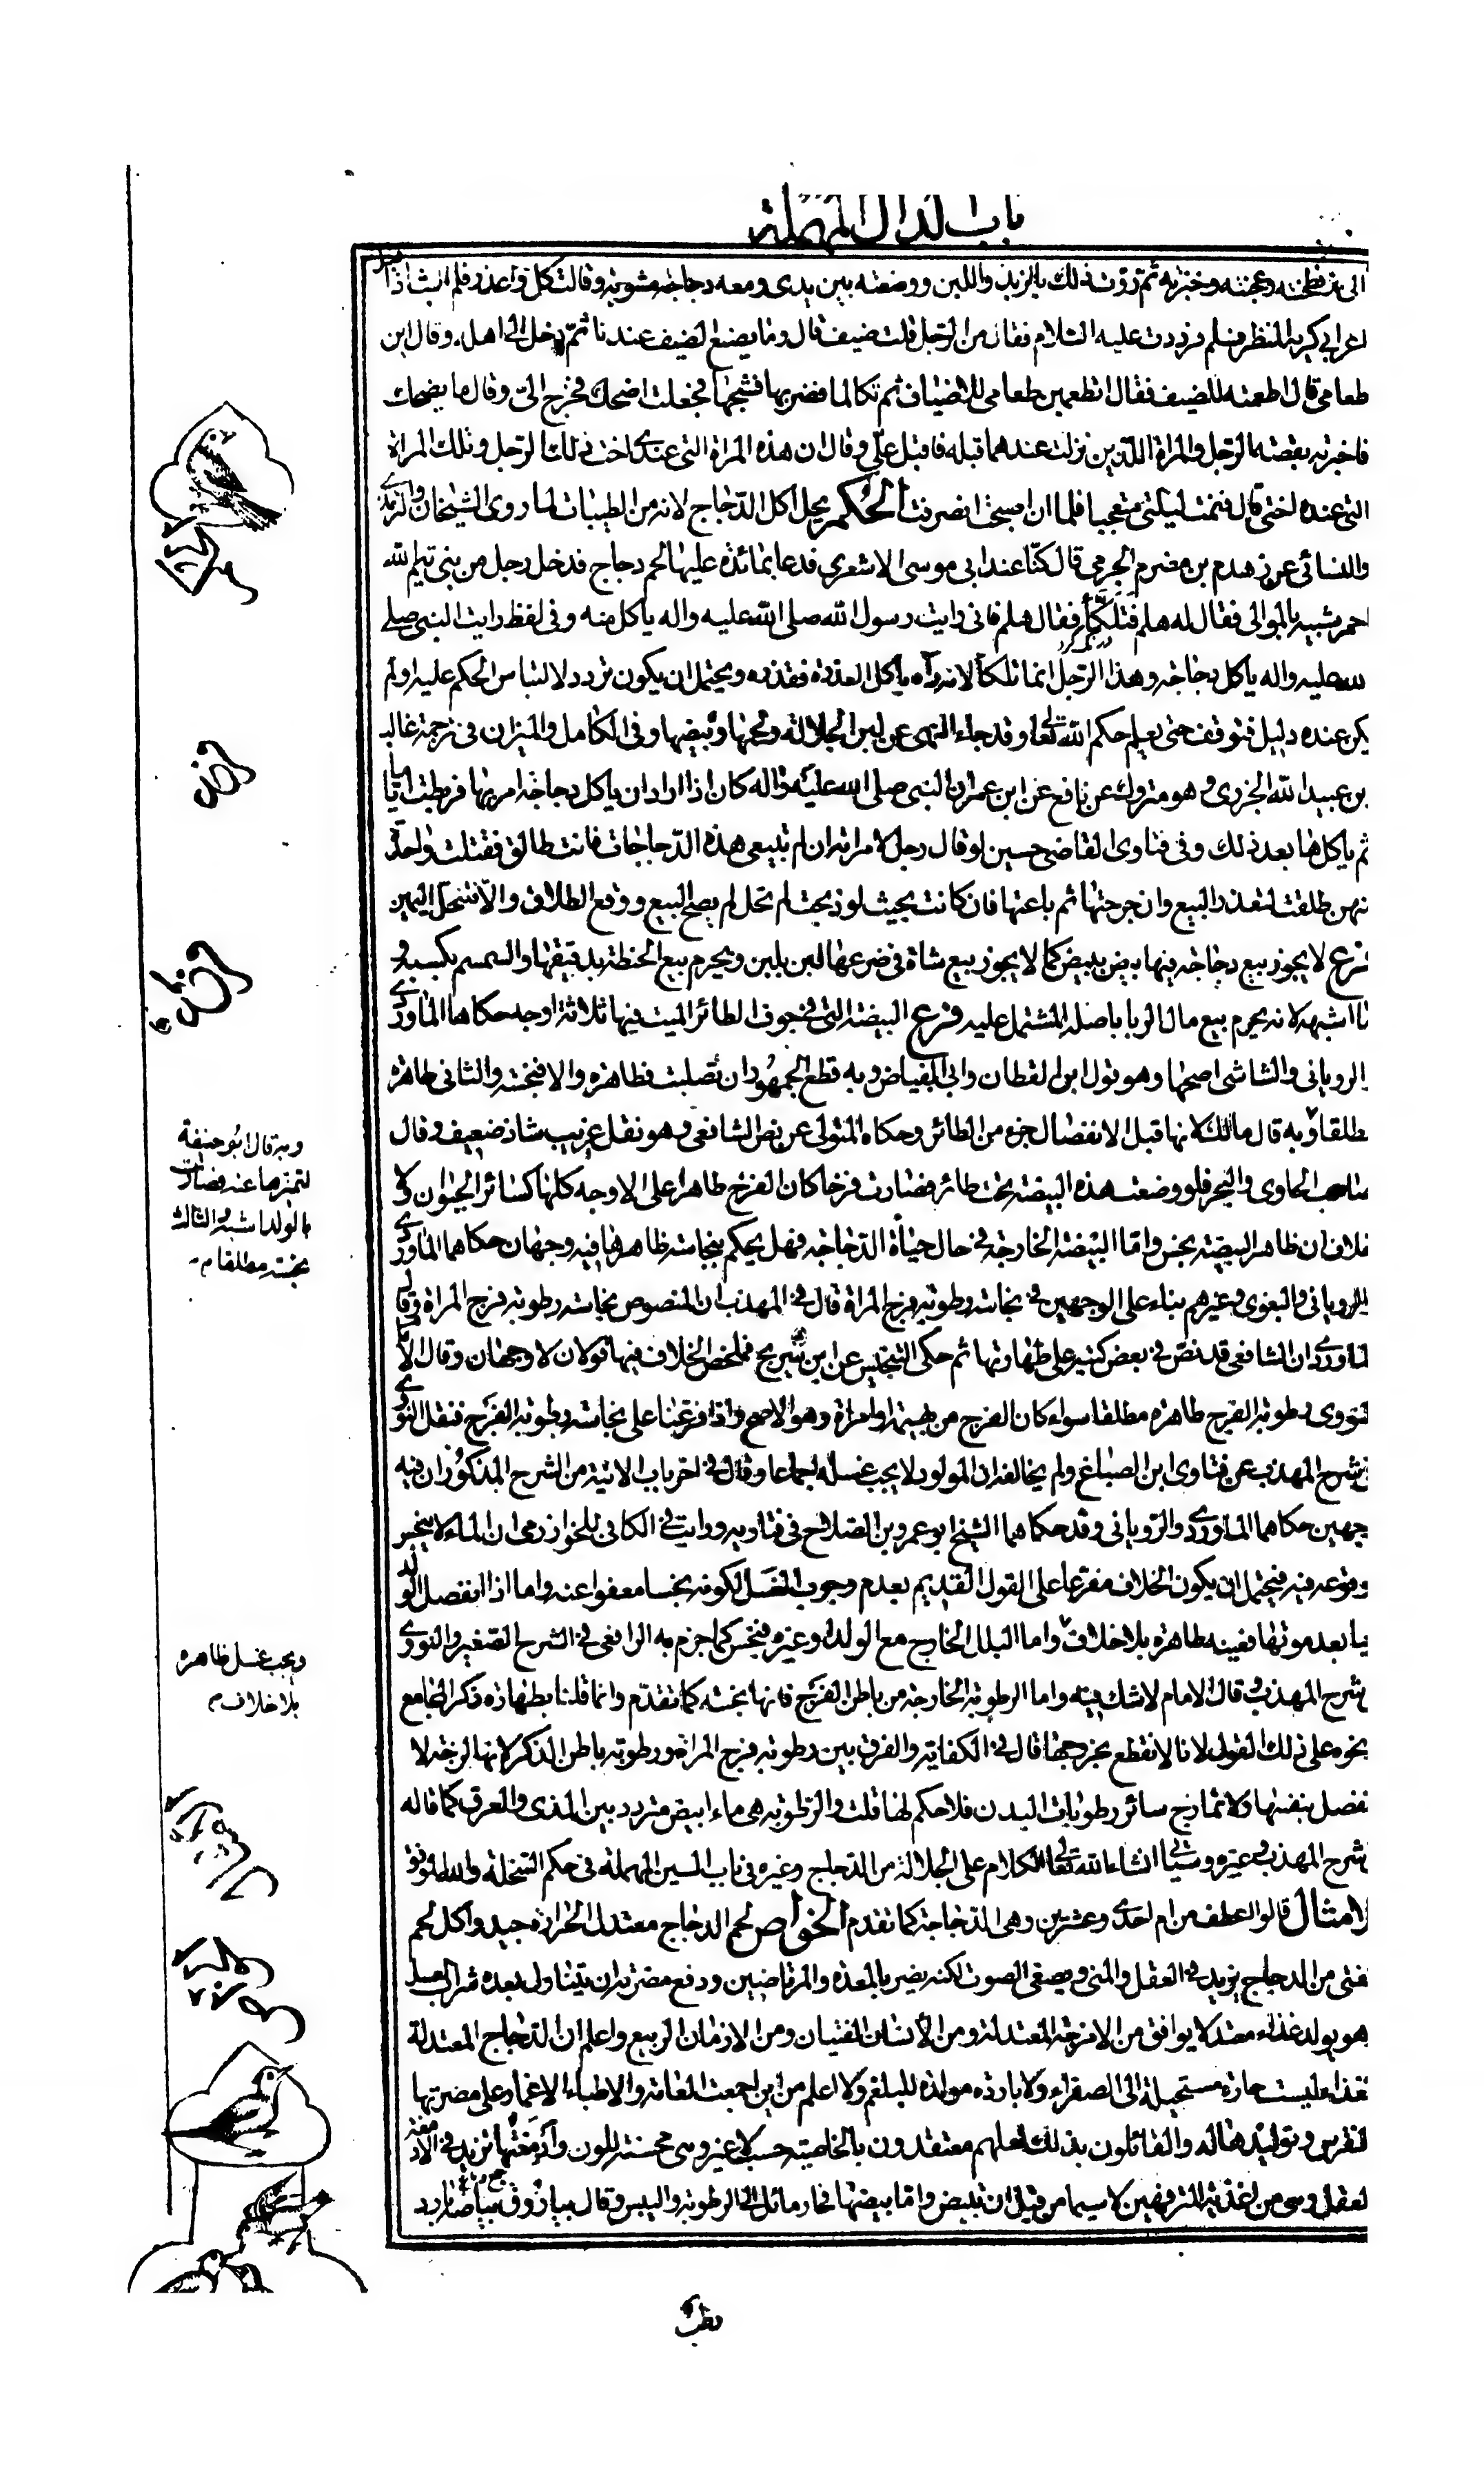 باب الدال المهملة
الى بر فطحنته وعجنته وخبزته ثم روّت ذلك بالزبد واللبن ووضعته بين يدى ومعه دجاجة مشوية وقالت كل واعذر فلم البث اذا
اعرابي كريه المنظر فسلم فرددت عليه السلام فقال من الرجل قلت ضيف قال وما يصنع الضيف عندنا ثم دخل الى اهله وقال اين
طعامى قال اطعمته للضيف فقال اتطعمين طعامى للاضياف ثم تكالما فضربها فشجها فجعلت اضحك فخرج الىّ وقال ما يضحك
فاخبرته بقصة الرجل والمراة اللذين نزلت عندهما قبله فاقبل علىّ وقال ان هذه المراة التى عندى اخت ذلك الرجل وتلك المراة
التى عنده اختى قال فنمت ليلتى متعجبا فلما ان اصبحت انصرفت الحكم يحل اكل الدجاج لانه من الطيبات لما روى الشيخان والترمذى
والنسائى عن زهدم بن مضرم الجرمى قال كنّا عند ابى موسى الاشعرى فدعا بمائدة عليها لحم دجاج فدخل رجل من بنى تيم الله
احمر شبيه بالموالى فقال له هلم فتلكّأ فقال هلم فانى رايت رسول الله صلى الله عليه واله ياكل منه وفى لفظ رايت النبى صلى
لله عليه واله ياكل دجاجة وهذا الرجل انما تلكأ لانه رآه ياكل العذرة فقذره ويحتمل ان يكون تردد لالتباس الحكم عليه ولم
يكن عنده دليل فتوقف حتى يعلم حكم الله تعالى وقد جاء النهى عن لبن الجلالة ولحمها وبيضها وفى الكامل والميزان فى ترجمة غالب
بن عبيد الله الجزرى وهو متروك عن نافع عن ابن عمر ان النبى صلى الله عليه واله كان اذا اراد ان ياكل دجاجة امر بها فربطت اياما
ثم ياكلها بعد ذلك وفى فتاوى القاضى حسين لو قال رجل لامراته ان لم تبيعى هذه الدجاجات فانت طالق فقتلت واحدة
منهن طلقت لتعذر البيع وان جرحتها ثم باعتها فان كانت بحيث لو ذبحت لم تحل لم يصح البيع ووقع الطلاق والا فتنحل اليمين
فرع لا يجوز بيع دجاجة فيها بيض ببيض كما لا يجوز بيع شاة فى ضرعها لبن بلبن ويحرم بيع الحنطة بدقيقها والسمسم بكسبه و
ما اشبهه لانه يحرم بيع مال الربا باصله المشتمل عليه فرع البيضة التى فى جوف الطائر الميت فيها ثلاثة اوجه حكاها الماوردى
والرويانى والشاشى اصحها وهو قول ابن القطان وابى الفياض وبه قطع الجمهور ان تصلبت فطاهرة والا فنجسة والثانى طاهرة
مطلقا وبه قال مالك لانها قبل الانفصال جزء من الطائر وحكاه المتولى عن نص الشافعى وهو نقل غريب شاذ ضعيف وقال
صاحب الحاوى والبحر فلو وضعت هذه البيضة تحت طائر فصارت فرخا كان الفرخ طاهرا على الاوجه كلها كسائر الحيوان ولا
خلاف ان ظاهر البيضة نجس واما البيضة الخارجة فى حال حياة الدجاجة فهل يحكم بنجاسة ظاهرها فيه وجهان حكاهما الماوردى
والرويانى والبغوى وغيرهم بناء على الوجهين فى نجاسة رطوبة فرج المراة قال فى المهذب ان المنصوص نجاسة رطوبة فرج المراة وقال
الماوردى ان الشافعى قد نص فى بعض كتبه على طهارتها ثم حكى التنجيس عن ابن سريج فملخص الخلاف فيها قولان لا وجهان وقال الامام
النووى رطوبة الفرج طاهرة مطلقا سواء كان الفرج من بهيمة او امراة وهو الاصح واذا فرعنا على نجاسة رطوبة الفرج فنقل النووى
فى شرح المهذب عن فتاوى ابن الصباغ ولم يخالفه ان المولود لا يجب غسله اجماعا وقال فى اخر باب الانية من الشرح المذكور ان فيه
وجهين حكاهما الماوردى والرويانى وقد حكاهما الشيخ ابو عمرو بن الصلاح فى فتاويه ورايت فى الكافى للخوارزمى ان الماء لا ينجس
بوقوعه فيه فيحتمل ان يكون الخلاف مفرعا على القول القديم بعدم وجوب الغسل لكونه نجسا معفوا عنه واما اذا انفصل الولد
حيا بعد موتها فعينه طاهرة بلا خلاف واما البلل الخارج مع الولد او غيره فنجس كما جزم به الرافعى فى الشرح الصغير والنووى
بشرح المهذب وقال الامام لا شك فيه واما الرطوبة الخارجة من باطن الفرج فانها نجسة كما تقدم وانما قلنا بطهارة ذكر المجامع
نحوه على ذلك القول لانا لا نقطع بخروجها قال فى الكفاية والفرق بين رطوبة فرج المراة ورطوبة باطن الذكر لانها لزجة لا
تنفصل بنفسها ولا تمازج سائر رطوبات البدن فلا حكم لها قلت والرطوبة هى ماء ابيض متردد بين المذى والعرق كما قاله
بشرح المهذب وغيره وسياتى انشاء الله تعالى الكلام على الجلالة من الدجاج وغيره فى باب السين المهملة فى حكم السخلة والله الموفق
الامثال قالوا اعطف من ام احدى وعشرين وهى الدجاجة كما تقدم الخواص لحم الدجاج معتدل الحرارة جيد واكل لحم
الفتى من الدجاج يزيد فى العقل والمنى ويصفى الصوت لكنه يضر بالمعدة والمرتاضين ودفع مضرته ان يتناول بعده شراب العسل
وهو يولد غذاء معتدلا يوافق من الامزجة المعتدلة ومن الانسان الفتيان ومن الازمان الربيع واعلم ان الدجاج المعتدلة
الغذاء ليست حارة مستحيلة الى الصفراء ولا باردة مولدة للبلغم ولا اعلم من اين اجمعت العامة والاطباء الاغمار على مضرتها
بالنقرس وتوليدها له والقائلون بذلك لعلهم معتقدون بالخاصية حسب لا غير وهى محسنة للون وادمغتها تزيد فى الادمغة
والعقل وهى من اغذية المترفهين لا سيما من قبل ان تبيض واما بيضها فحار مائل الى الرطوبة واليبس وقال بياروق بياضه بارد
وبه قال ابو حنيفة
لتميزها عنه فصارت
بالولد اشبه والثالث
نجسة مطلقا م
ويجب غسل ظاهره
بلا خلاف م
رطب